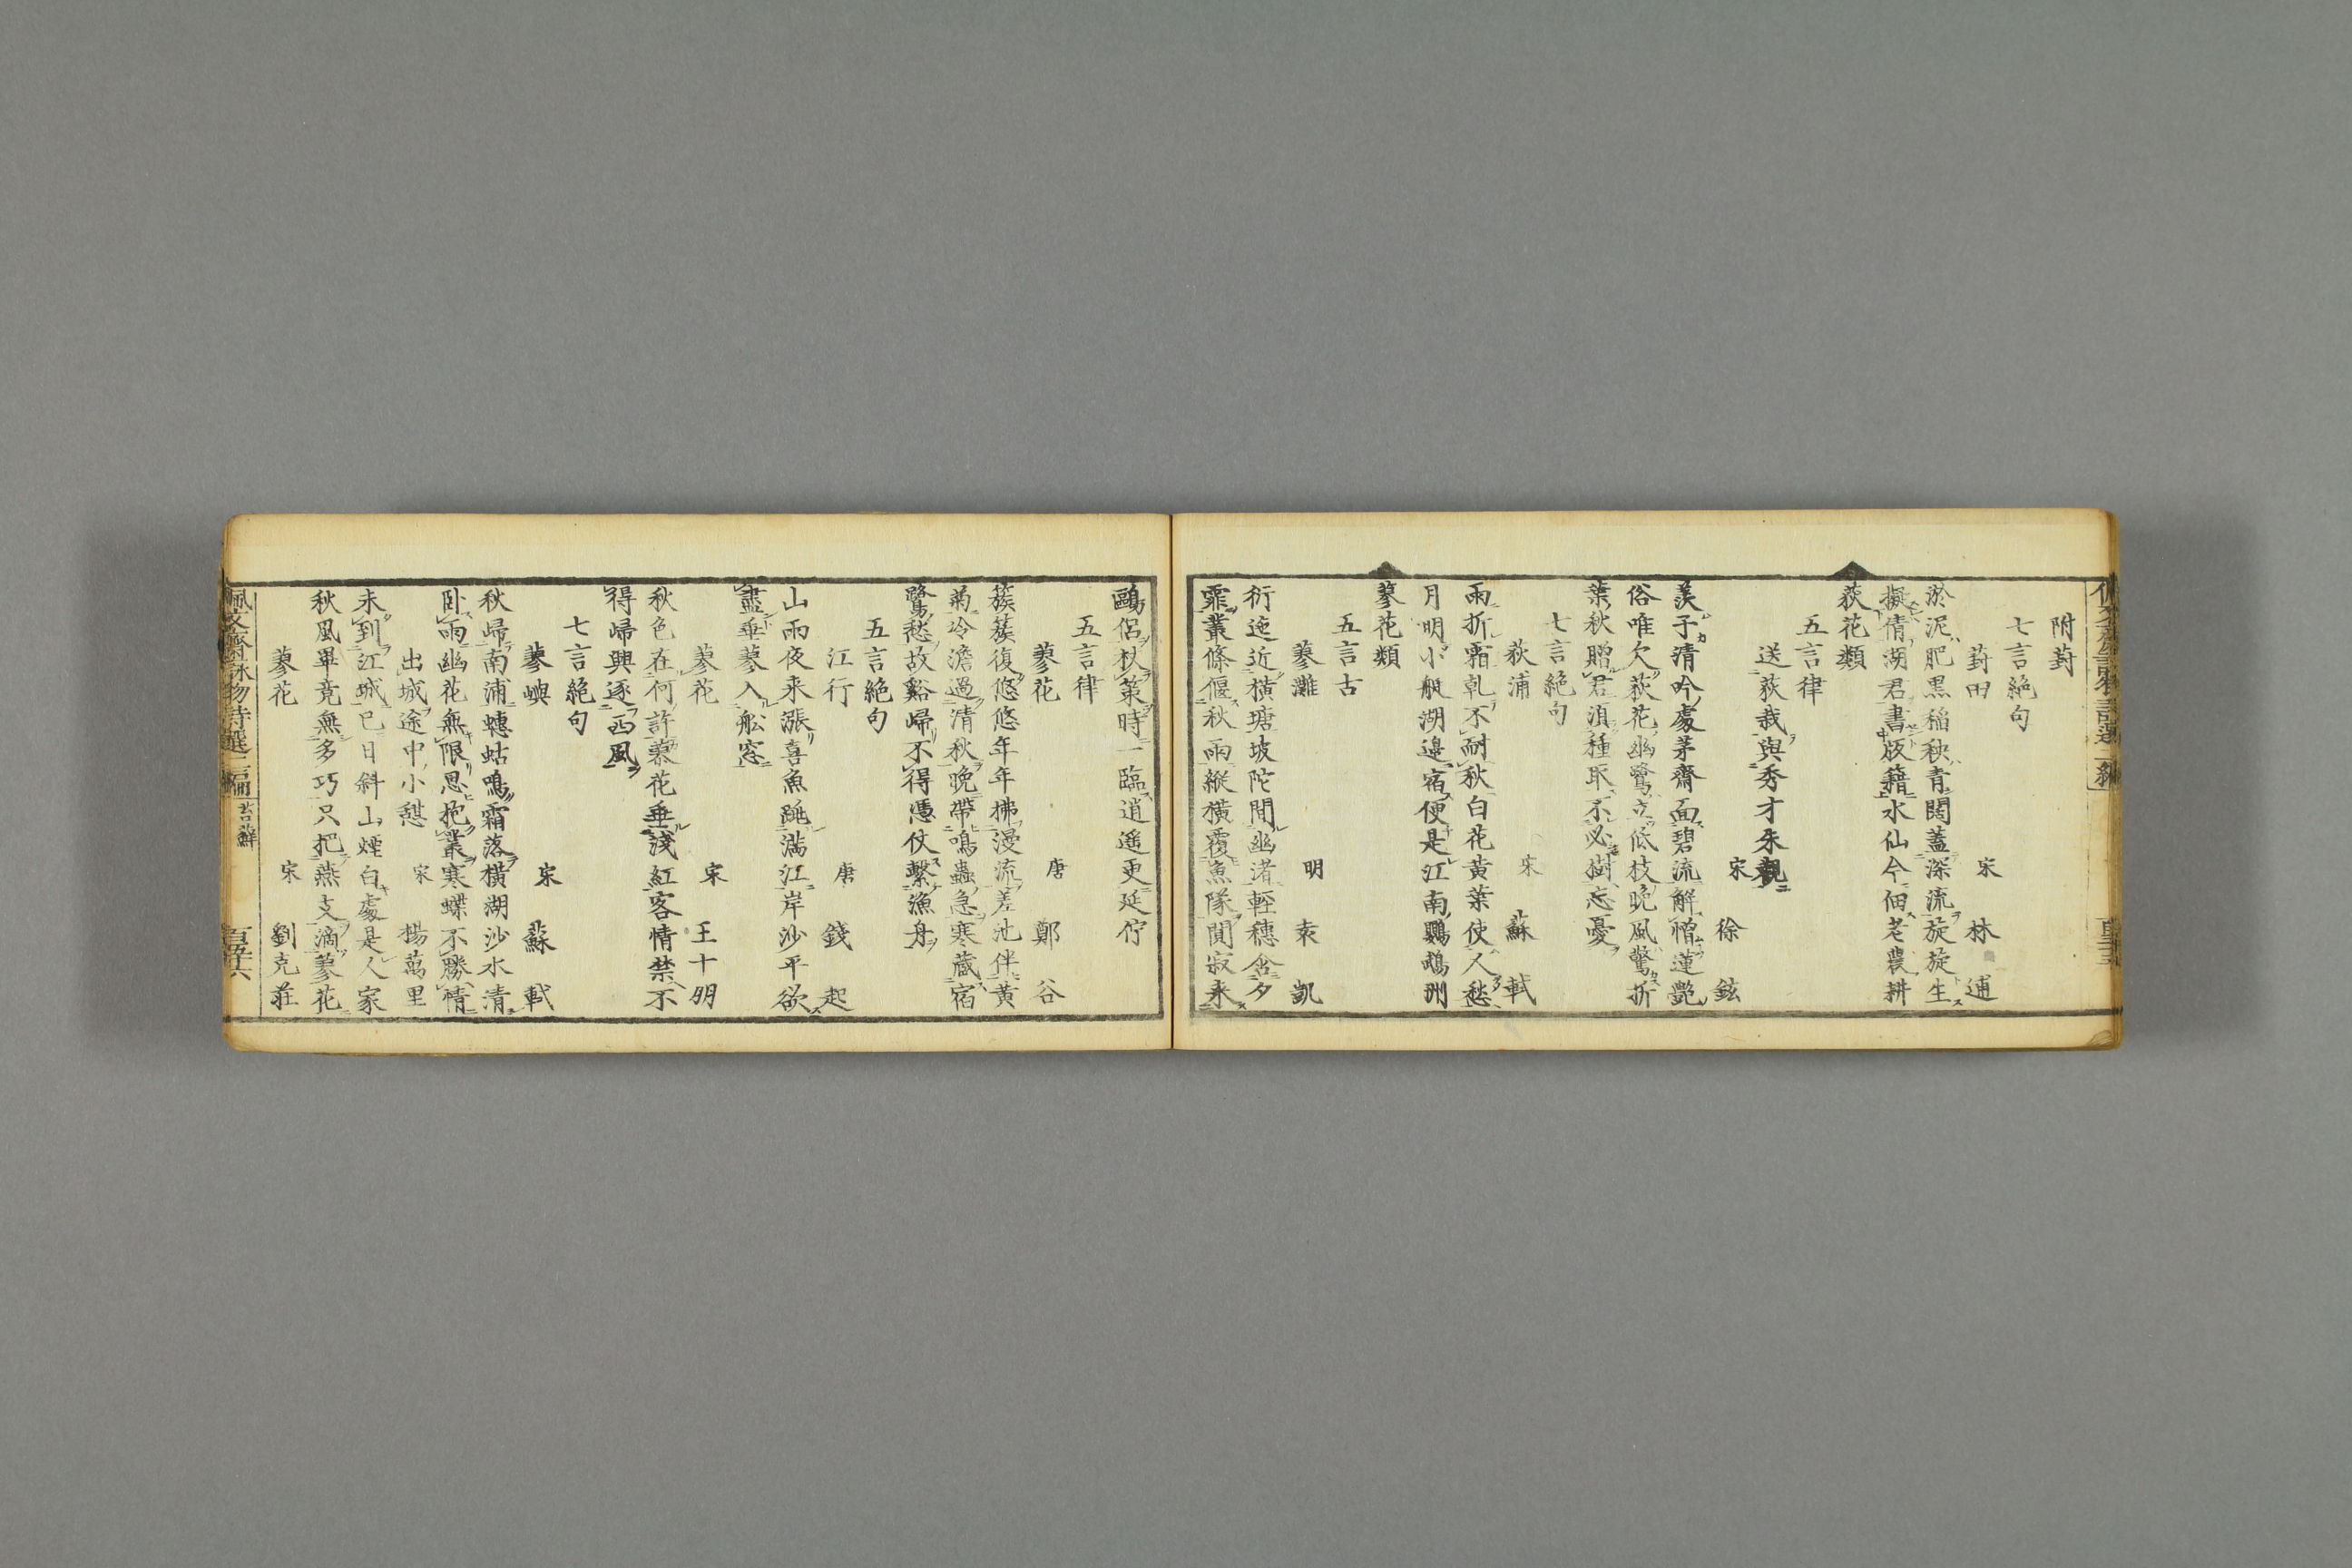 附葑
七言絕句
葑田
宋 林逋
淤泥肥黒稲秧青闊蓋深流旋旋生
擬倩湖君書版籍水仙今佃老農耕
荻花類
五言律
送荻栽與秀才朱觀
宋 徐鉉
羨子清吟處茅齋面碧流解憎蓮艷
俗唯欠荻花幽鷺立低枝晚風驚折
葉秋贈君湏種取不必樹忘憂
七言絕句
荻浦
宋 蘇軾
雨折霜乹不耐秋白花黃葉使人愁
月明小艇湖邉宿便是江南鸚鵡洲
蓼花類
五言古
蓼灘
明 袁凱
衍迤近橫塘坡陀間幽渚輕穗含夕
霏叢條偃秋雨縱橫覆魚隊閴寂来
鷗侶杖策時一臨逍遥更延佇
五言律
蓼花
唐 鄭谷
簇簇復悠悠年年拂漫流差池伴黃
菊冷澹過清秋晚帶鳴蟲急寒蔵宿
鷺愁故谿歸不得憑仗繫漁舟
五言絕句
江行
唐 錢起
山雨夜来漲喜魚跳滿江岸沙平欲
盡垂蓼入舩窓
蓼花
宋 王十朋
秋色在何許蓼花垂淺紅客情禁不
得歸興逐西風
七言絕句
蓼嶼
宋 蘇軾
秋歸南浦蟪蛄鳴霜落橫湖沙水清
卧雨幽花無限思抱叢寒蝶不勝情
出城途中小憇
宋 楊萬里
未到江城已日斜山煙白處是人家
秋風畢竟無多巧只把燕支滴蓼花
蓼花
宋 劉克荘
佩文齋詠物詩選二編 苔蘚 百五十六